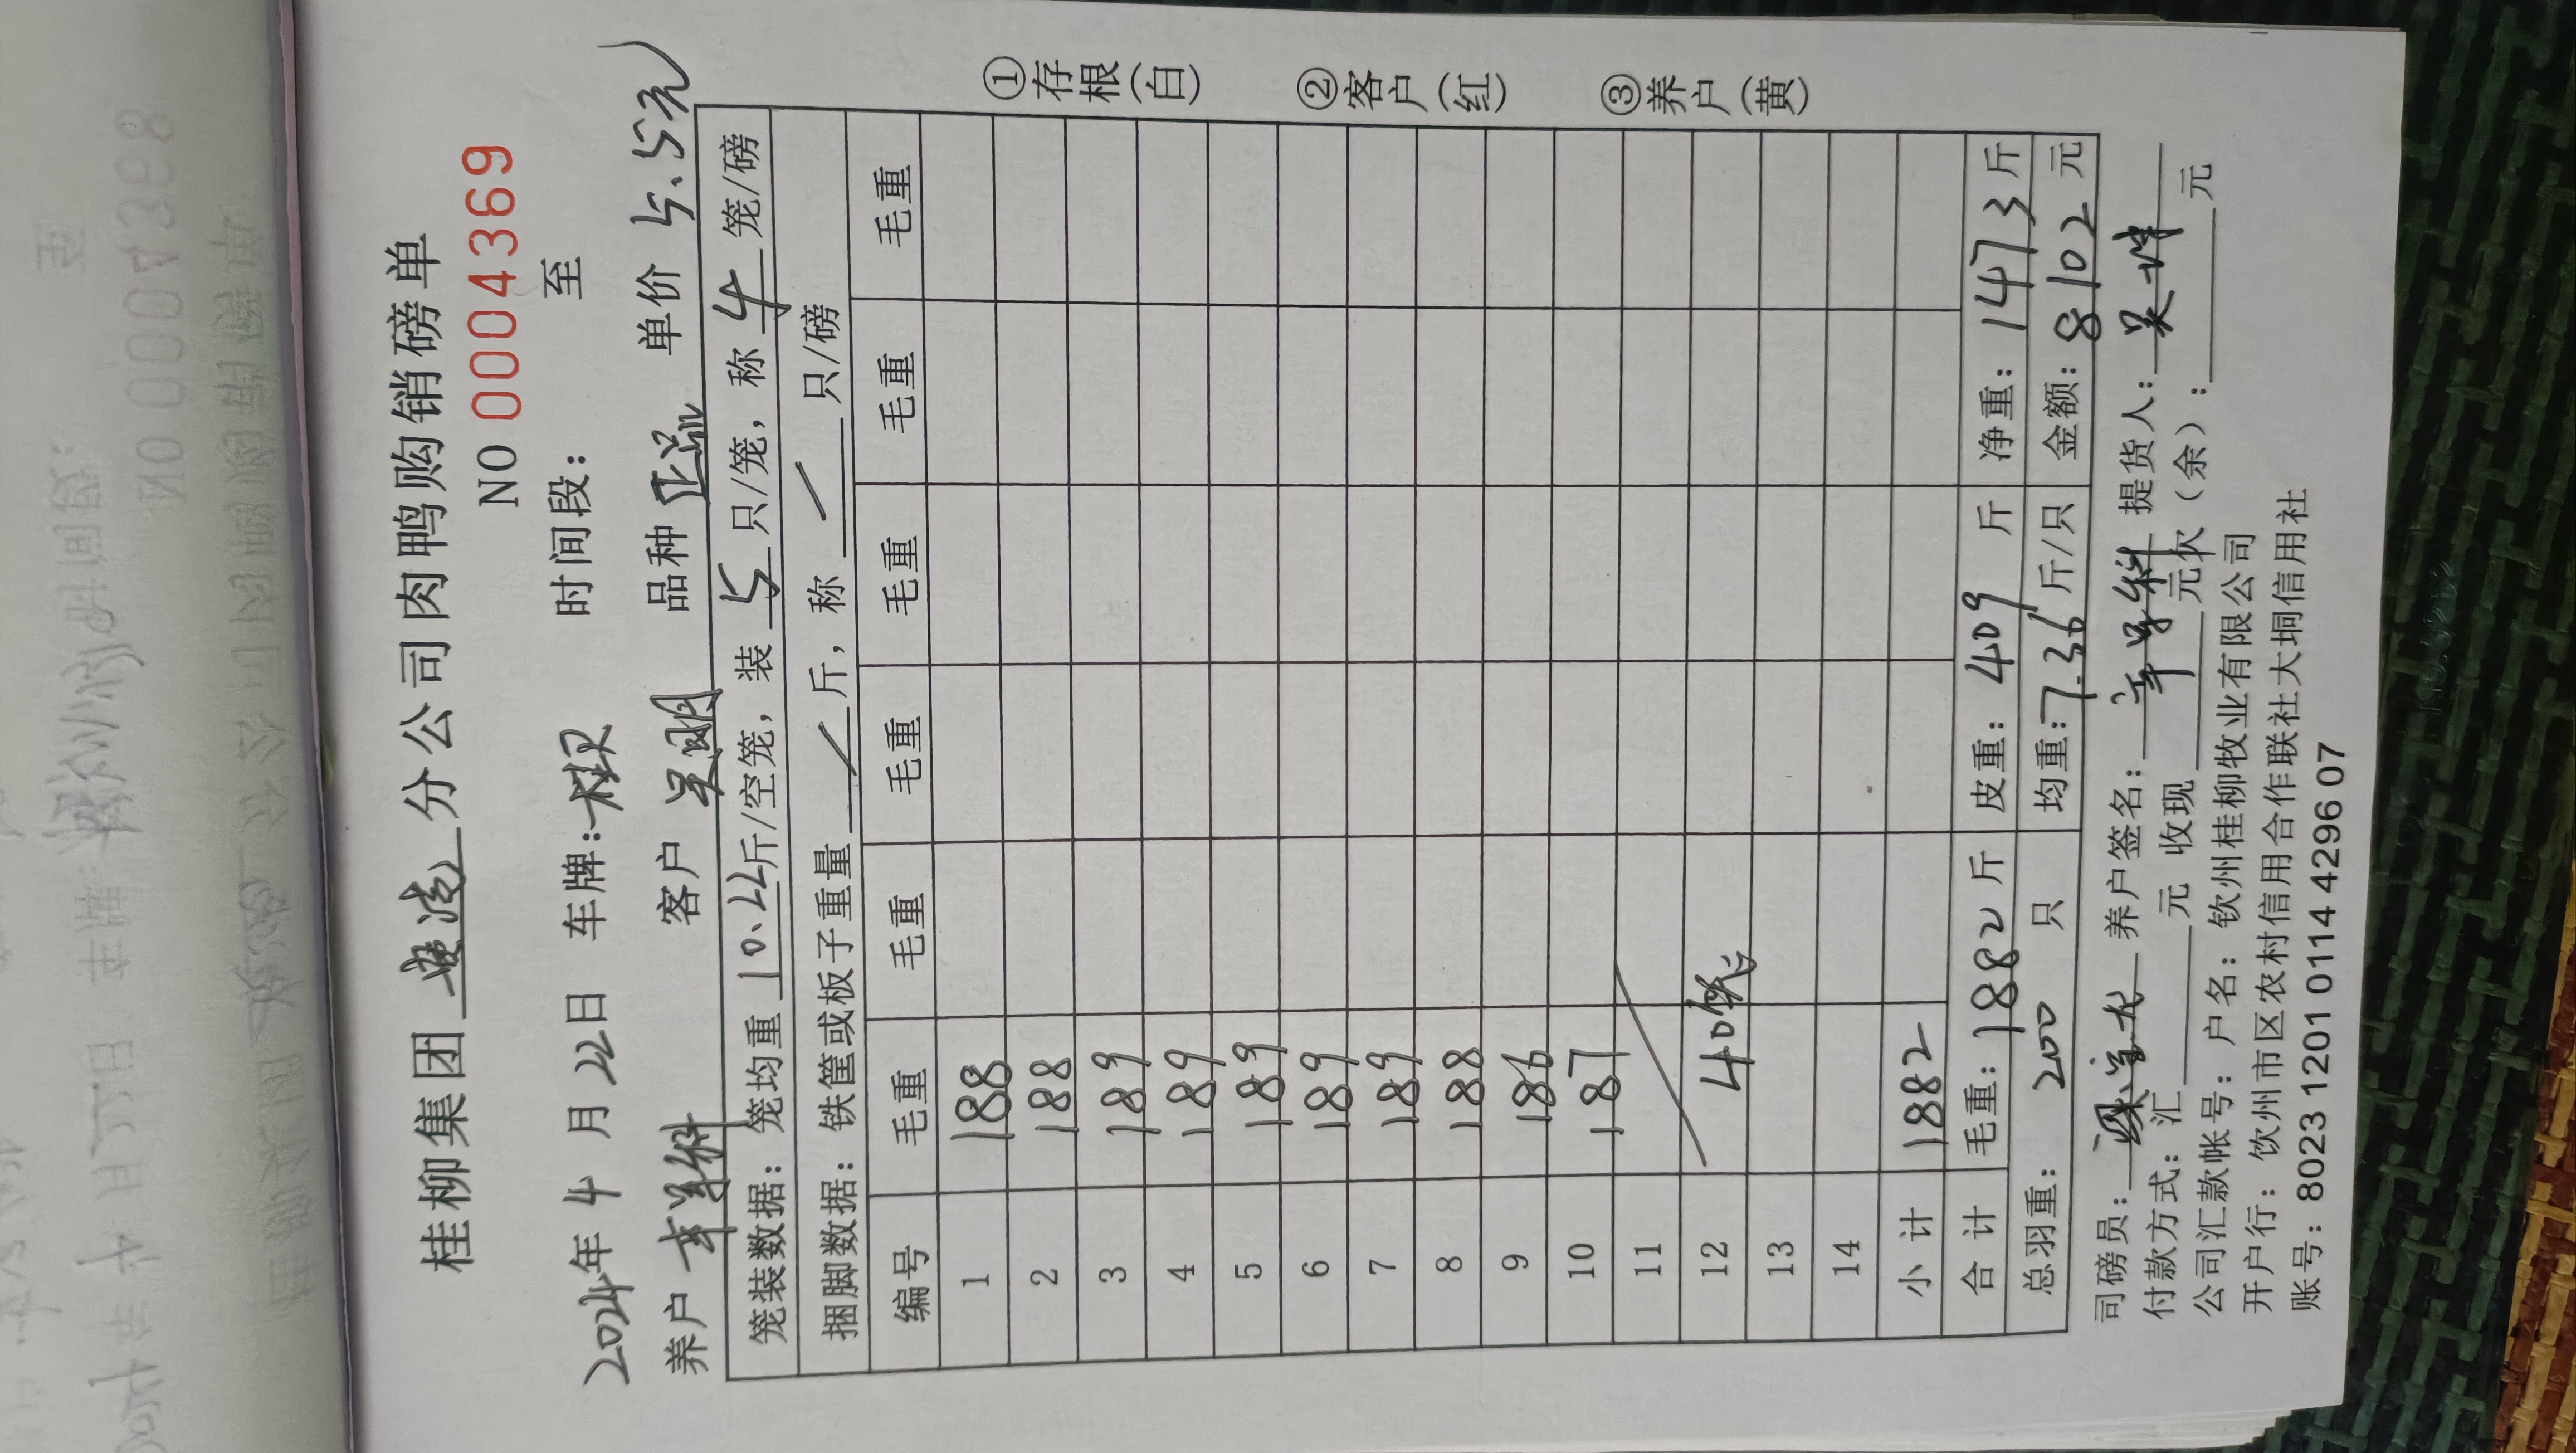 桂柳集团 分公司肉鸭购销磅单
NO 0004369
2024年 4 月 22日 车牌: 时间段： 至
养户 客户 吴明 品种 正品 单价 5.5元
笼装数据：笼均重 10.22斤/空笼，装 5 只/笼，称 4 笼/磅
捆脚数据：铁筐或板子重量 / 斤，称 / 只/磅
编号 毛重 毛重 毛重 毛重 毛重 毛重
1 188
2 188
3 189
4 189
5 189
6 189
7 189
8 188
9 186
10 187
11
12 40笼
13
14
小计 1882
合计 毛重：1882斤 皮重：409 斤 净重：1473 斤
总羽重： 200 只 均重：7.36 斤/只 金额：8102 元
司磅员： 养户签名： 提货人：
付款方式：汇 元 收现 元欠（余）： 元
公司汇款帐号：户名：钦州桂柳牧业有限公司
开户行：饮州市区农村信用合作联社大垌信用社
账号：8023 1201 0114 4296 07
①存根（白）
②客户（红）
③养户（黄）